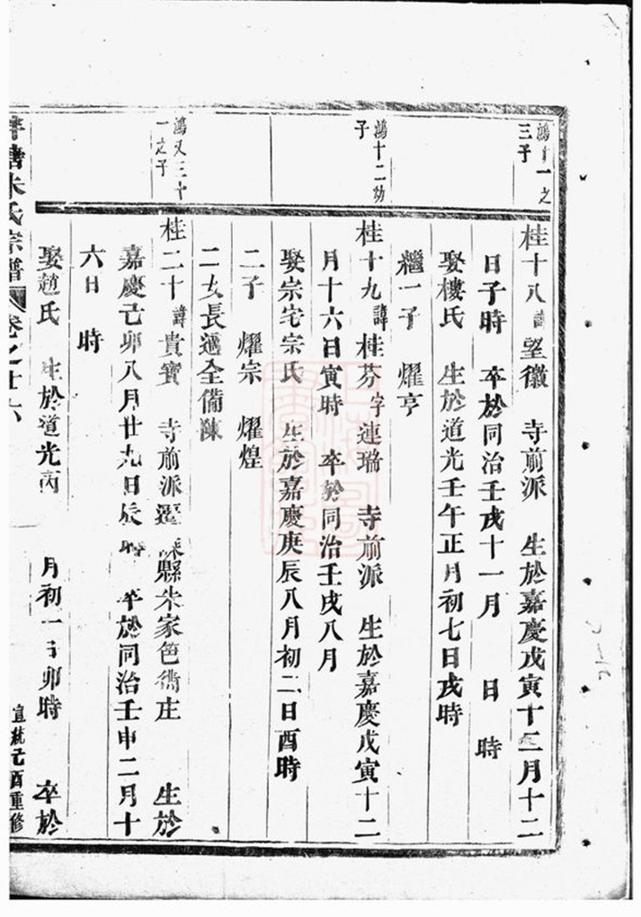 鴻十一之
三子
桂十八諱望徽 寺前派 生於嘉慶戊寅十二月十二
日子時 卒於同治壬戌十一月 日 時
娶樓氏 生於道光壬午正月初七日戌時
繼一子 燿亨
鴻十二幼
子
桂十九諱桂芬字連璐 寺前派 生於嘉慶戊寅十二
月十六日寅時 卒於同治壬戌八月
娶宗宅宗氏 生於嘉慶庚辰八月初二日酉時
二子 燿宗 燿煌
二女長適全備陳
鴻又三十
一之子
桂二十諱貴寶 寺前派遷 縣朱家 莊 生於
嘉慶己卯八月廿九日辰時 卒於同治壬申二月十
六日 時
娶趙氏 生於道光丙 月初一日卯時 卒於
塘朱氏宗譜 卷之廿六
宣統己酉重修